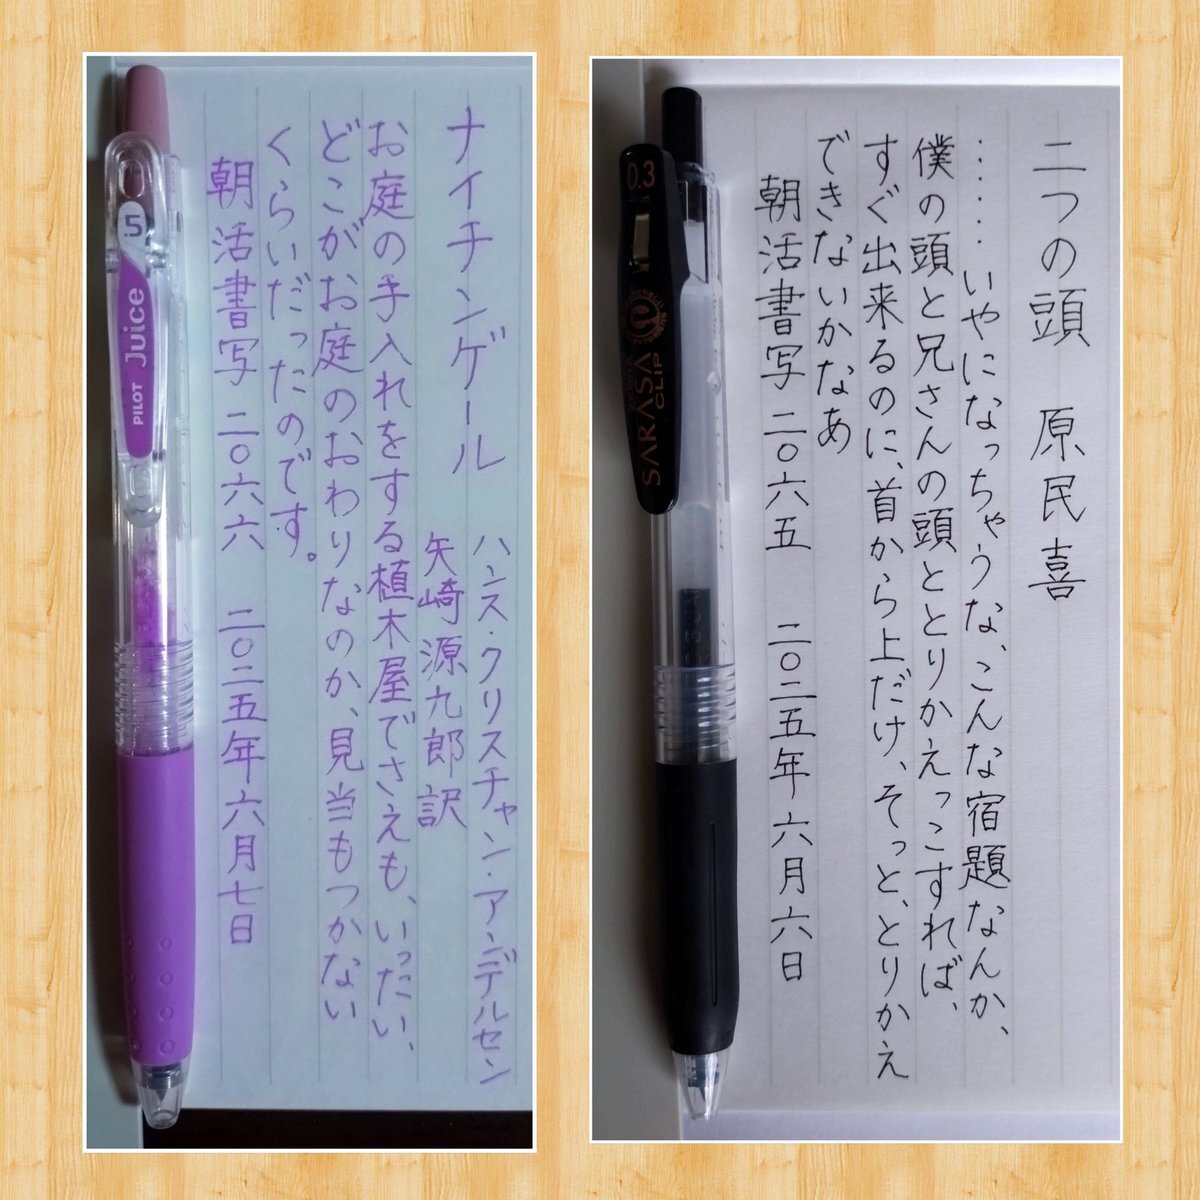 ナイチンゲール
ハンス・クリスチャン・アンデルセン
矢崎源九郎訳
お庭の手入れをする植木屋でさえも、いったい、
どこがお庭のおわりなのか、見当もつかない
くらいだったのです。
朝活書写 二〇六六 二〇二五年六月七日
.5
Juice
PILOT
二つの頭 原民喜
……いやになっちゃうな、こんな宿題なんか、
僕の頭と兄さんの頭ととりかえっこすれば、
すぐ出来るのに、首から上だけ、そっと、とりかえ
できないかなあ
朝活書写 二〇六五 二〇二五年六月六日
0.3
SARASA
CLIP